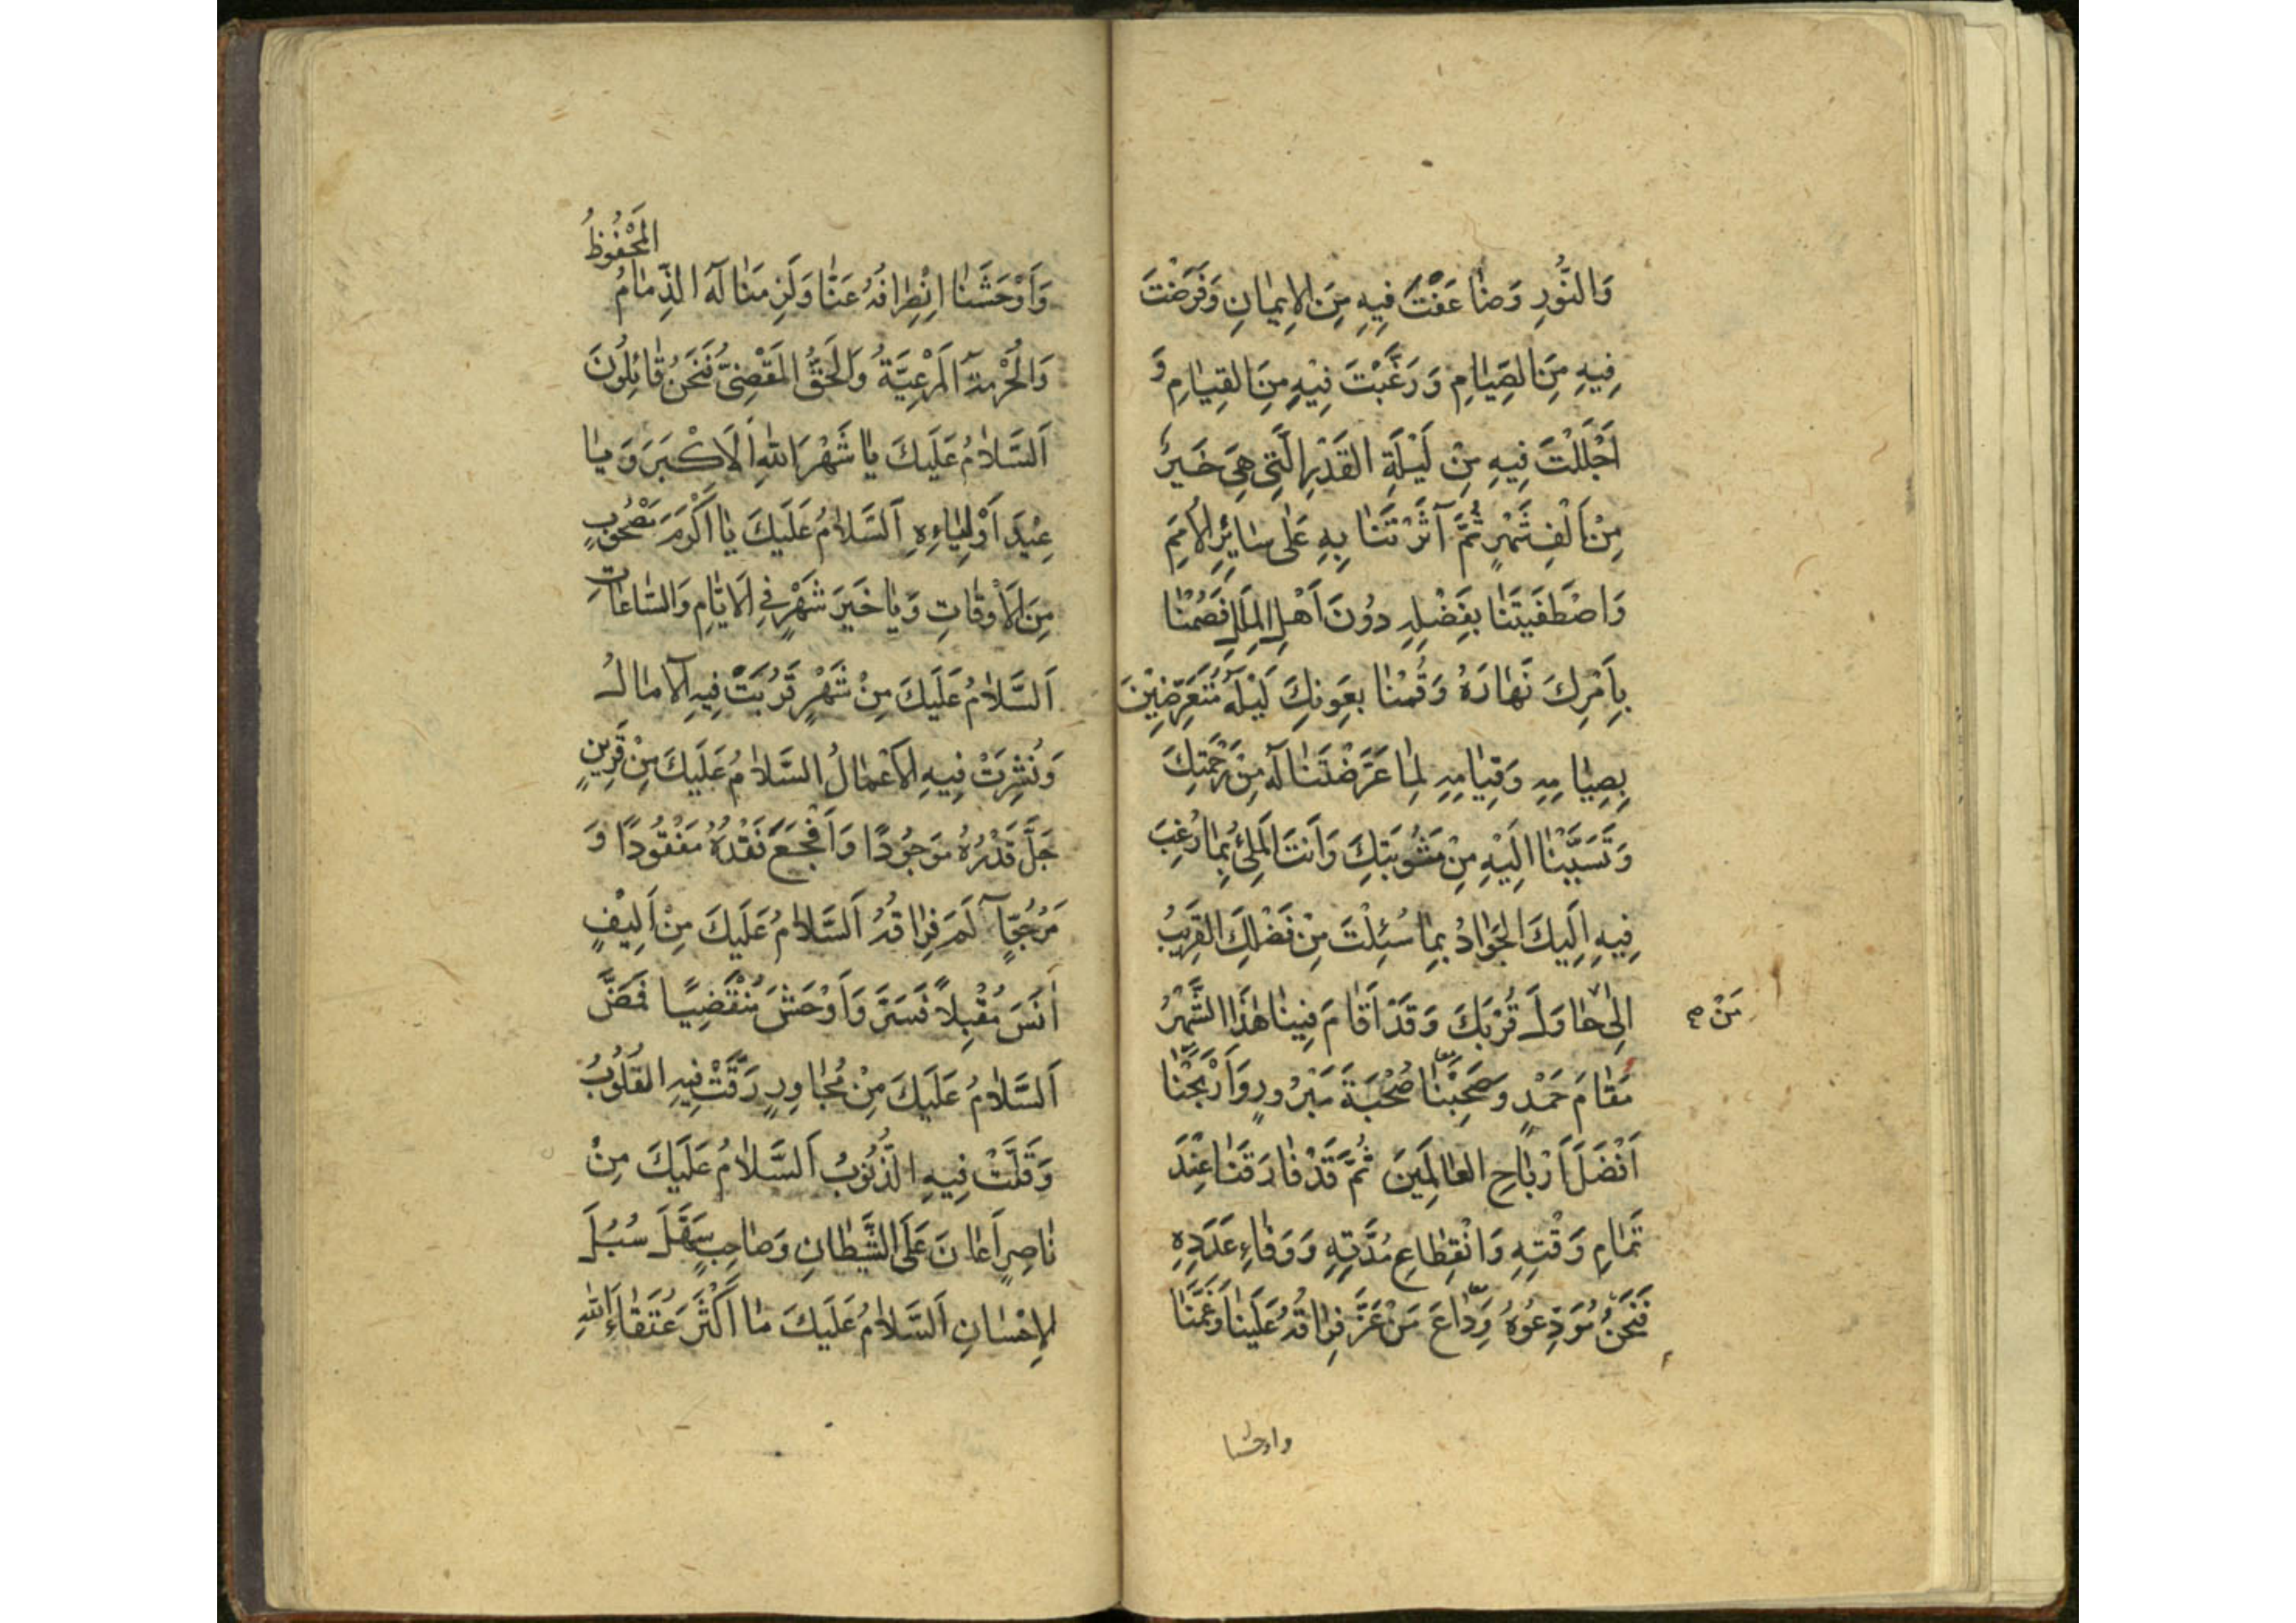 وَالنُّورِ وَضٰاعَفْتَ فِيهِ مِنَ الإِيمٰانِ وَفَرَضْتَ
فِيهِ مِنَ الصِّيٰامِ وَرَغَّبْتَ فِيْهِ مِنَ القِيٰامِ وَ
اَجْلَلْتَ فِيهِ مِنْ لَيْلَةِ القَدْرِ الَّتِي هِيَ خَيْرٌ
مِنْ اَلْفِ شَهْرٍ ثُمَّ آثَرْتَنٰا بِهِ عَلٰى سٰائِرِ الاُمَمِ
وَاصْطَفَيْتَنٰا بِفَضْلِهِ دُونَ اَهْلِ المِلَلِ فَصُمْنٰا
بِاَمْرِكَ نَهٰارَهُ وَقُمْنٰا بِعَونِكَ لَيْلَهُ مُتَعَرِّضِيْنَ
بِصِيٰامِهِ وَقِيٰامِهِ لِمٰا عَرَّضْتَنٰا لَهُ مِنْ رَحْمَتِكَ
وَتَسَبَّبْنٰا اِلَيْهِ مِنْ مَثُوبَتِكَ وَاَنْتَ المَلِئُ بِمٰا رُغِبَ
فِيهِ اِلَيكَ الجَوٰادُ بِمٰا سُئِلْتَ مِنْ فَضْلِكَ القَرِيبُ
اِلىٰ حٰاوَلَ قُرْبَكَ وَقَدْ اَقٰامَ فِينٰا هٰذَا الشَّهْرُ
مَنْ صح
مَقٰامَ حَمْدٍ وَصَحِبَنٰا صُحْبَةَ مَبْرُورٍ وَاَرْبَحَنٰا
اَفْضَلَ اَرْبٰاحِ العٰالَمِينَ ثُمَّ قَدْ فٰارَقَنٰا عِنْدَ
تَمٰامِ وَقْتِهِ وَانْقِطٰاعِ مُدَّتِهِ وَوَفٰاءِ عَدَدِهِ
فَنَحْنُ مُوَدِّعُوهُ وِدٰاعَ مَنْ عَزَّ فِرٰاقُهُ عَلَينٰا وَغَمَّنٰا
واوحشنا
وَاَوْحَشَنٰا اِنْصِرٰافُهُ عَنّٰا وَلَزِمَنٰا لَهُ الذِّمٰامُ المَحْفُوظُ
وَالحُرْمَةُ المَرْعِيَّةُ وَالحَقُّ المَقْضِيُّ فَنَحْنُ قٰائِلُونَ
اَلسَّلاٰمُ عَلَيكَ يٰا شَهْرَ اللهِ الاَكْبَرَ وَيٰا
عِيْدَ اَوْلِيٰاءِهِ اَلسَّلاٰمُ عَلَيكَ يٰا اَكْرَمَ مَصْحُوبٍ
مِنَ الاَوْقٰاتِ وَيٰا خَيرَ شَهْرٍ فِي الاَيّٰامِ وَالسّٰاعٰاتِ
اَلسَّلاٰمُ عَلَيكَ مِنْ شَهْرٍ قَرُبَتْ فِيهِ الآمٰالُ
وَنُشِرَتْ فِيهِ الاَعْمٰالُ السَّلاٰمُ عَلَيكَ مِنْ قَرِينٍ
جَلَّ قَدْرُهُ مَوجُودًا وَاَفْجَعَ فَقْدُهُ مَفْقُودًا وَ
مَرْجُوٍّ آلَمَ فِرٰاقُهُ اَلسَّلاٰمُ عَلَيكَ مِنْ اَلِيْفٍ
اٰنَسَ مُقْبِلاً فَسَرَّ وَاَوْحَشَ مُنْقَضِيًا فَمَضَّ
اَلسَّلاٰمُ عَلَيكَ مِنْ مُجٰاوِرٍ رَقَّتْ فِيهِ القُلُوبُ
وَقَلَّتْ فِيهِ الذُّنُوبُ اَلسَّلاٰمُ عَلَيكَ مِنْ
نٰاصِرٍ اَعٰانَ عَلَى الشَّيْطٰانِ وَصٰاحِبٍ سَهَّلَ سُبُلَ
الإِحْسٰانِ اَلسَّلاٰمُ عَلَيكَ مٰا اَكْثَرَ عُتَقٰاءَ اللهِ